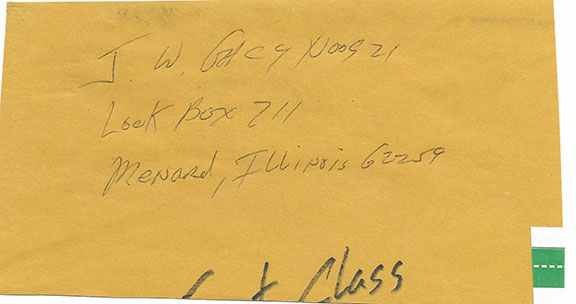 J. W. Gacy N00921
Lock Box 711
Menard, Illinois 62259
Class